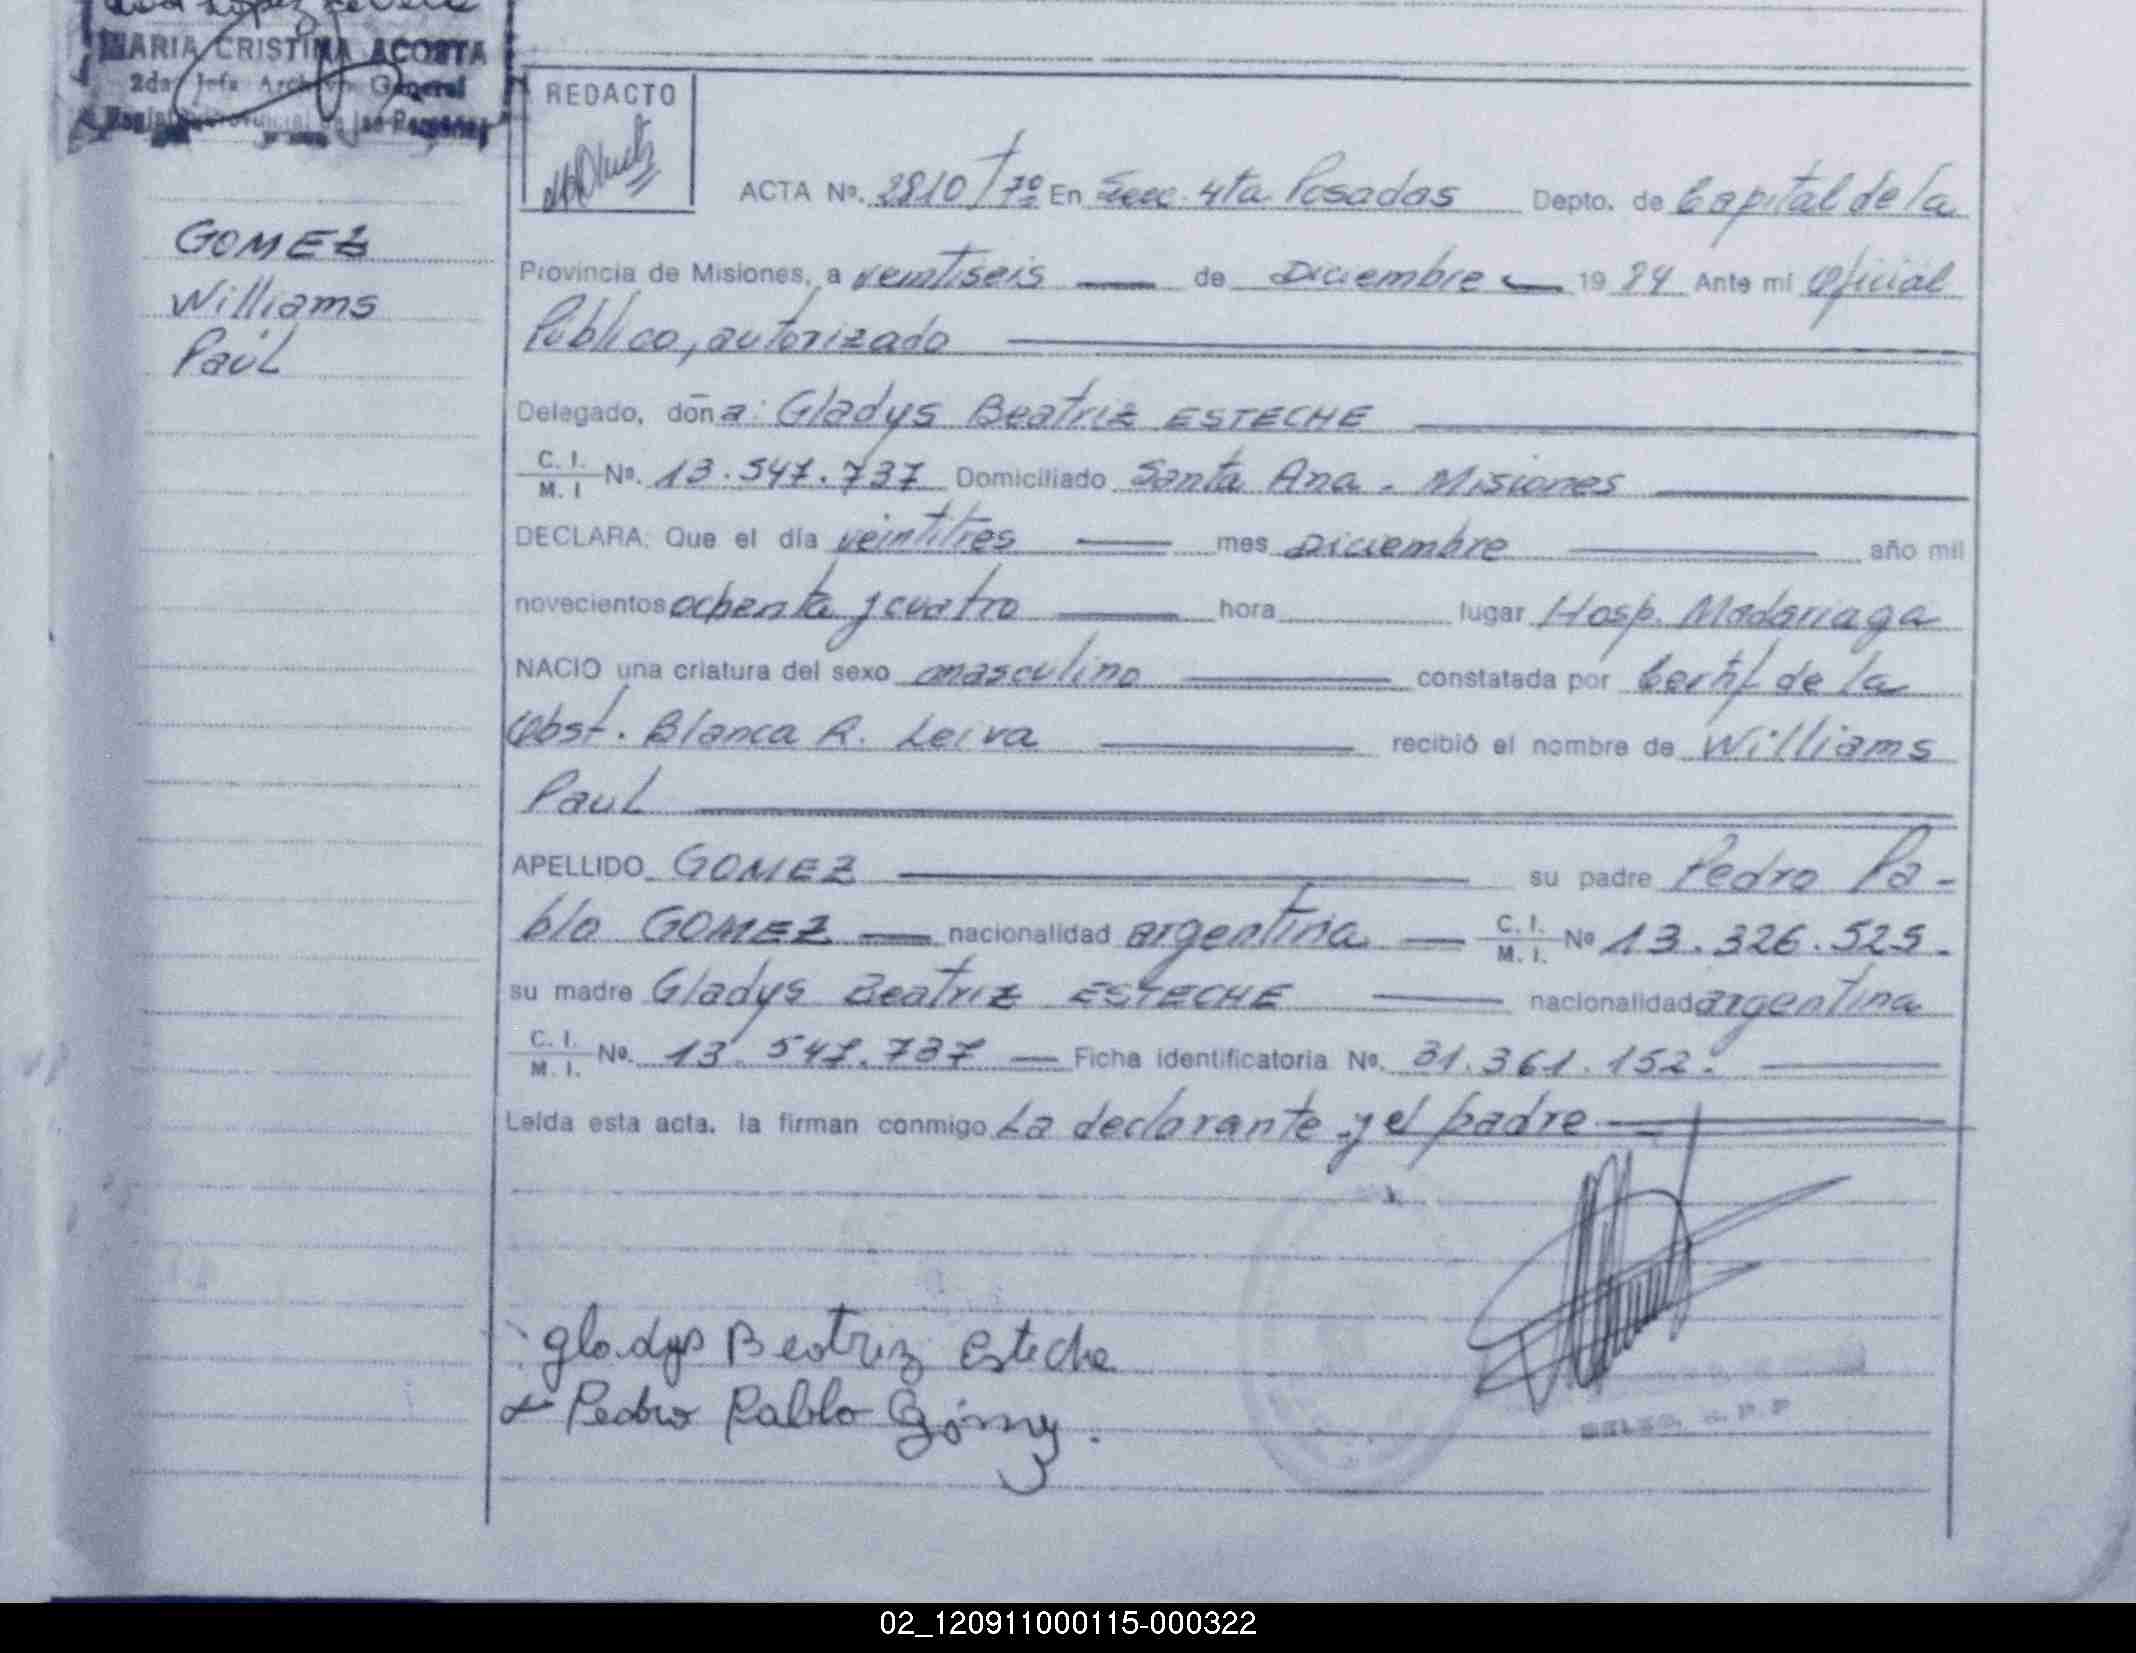 MARIA CRISTINA ACOSTA
2da Jefa Archivo General
Registro Provincial de las Personas
GOMEZ
Williams
Paúl
REDACTO
ACTA Nº. 2810/7º En Secc. 4ta Posadas Depto. de Capital de la
Provincia de Misiones, a veintiseis de Diciembre 19 84 Ante mí Oficial
Público, autorizado
Delegado, doña: Gladys Beatriz ESTECHE
C. I. M. I Nº. 13.547.737 Domiciliado Santa Ana - Misiones
DECLARA: Que el día veintitres mes Diciembre año mil
novecientos ochenta y cuatro hora lugar Hosp. Madariaga
NACIO una criatura del sexo masculino constatada por Certif de la
Obst. Blanca R. Leiva recibió el nombre de Williams
Paul
APELLIDO GOMEZ su padre Pedro Pa-
blo GOMEZ nacionalidad argentina C. I. M. I. Nº 13.326.525.
su madre Gladys Beatriz ESTECHE nacionalidad argentina
C. I. M. I. Nº. 13.547.737 Ficha identificatoria Nº. 31.361.152.
Leída esta acta, la firman conmigo La declarante y el padre
Gladys Beatriz Esteche
Pedro Pablo Gómez.
02_120911000115-000322